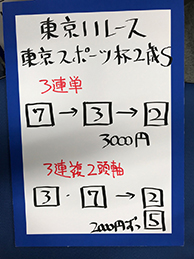 東京11レース
東京スポーツ杯2歳S
3連単
7 → 3 → 2
3000円
3連複2頭軸
3・7 → 2
2000円ずつ 5